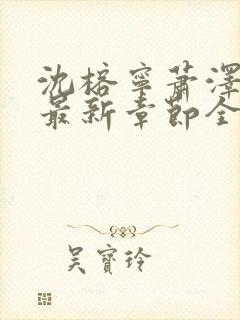 沈榕寧蕭澤
最新章節全
吳寶玲